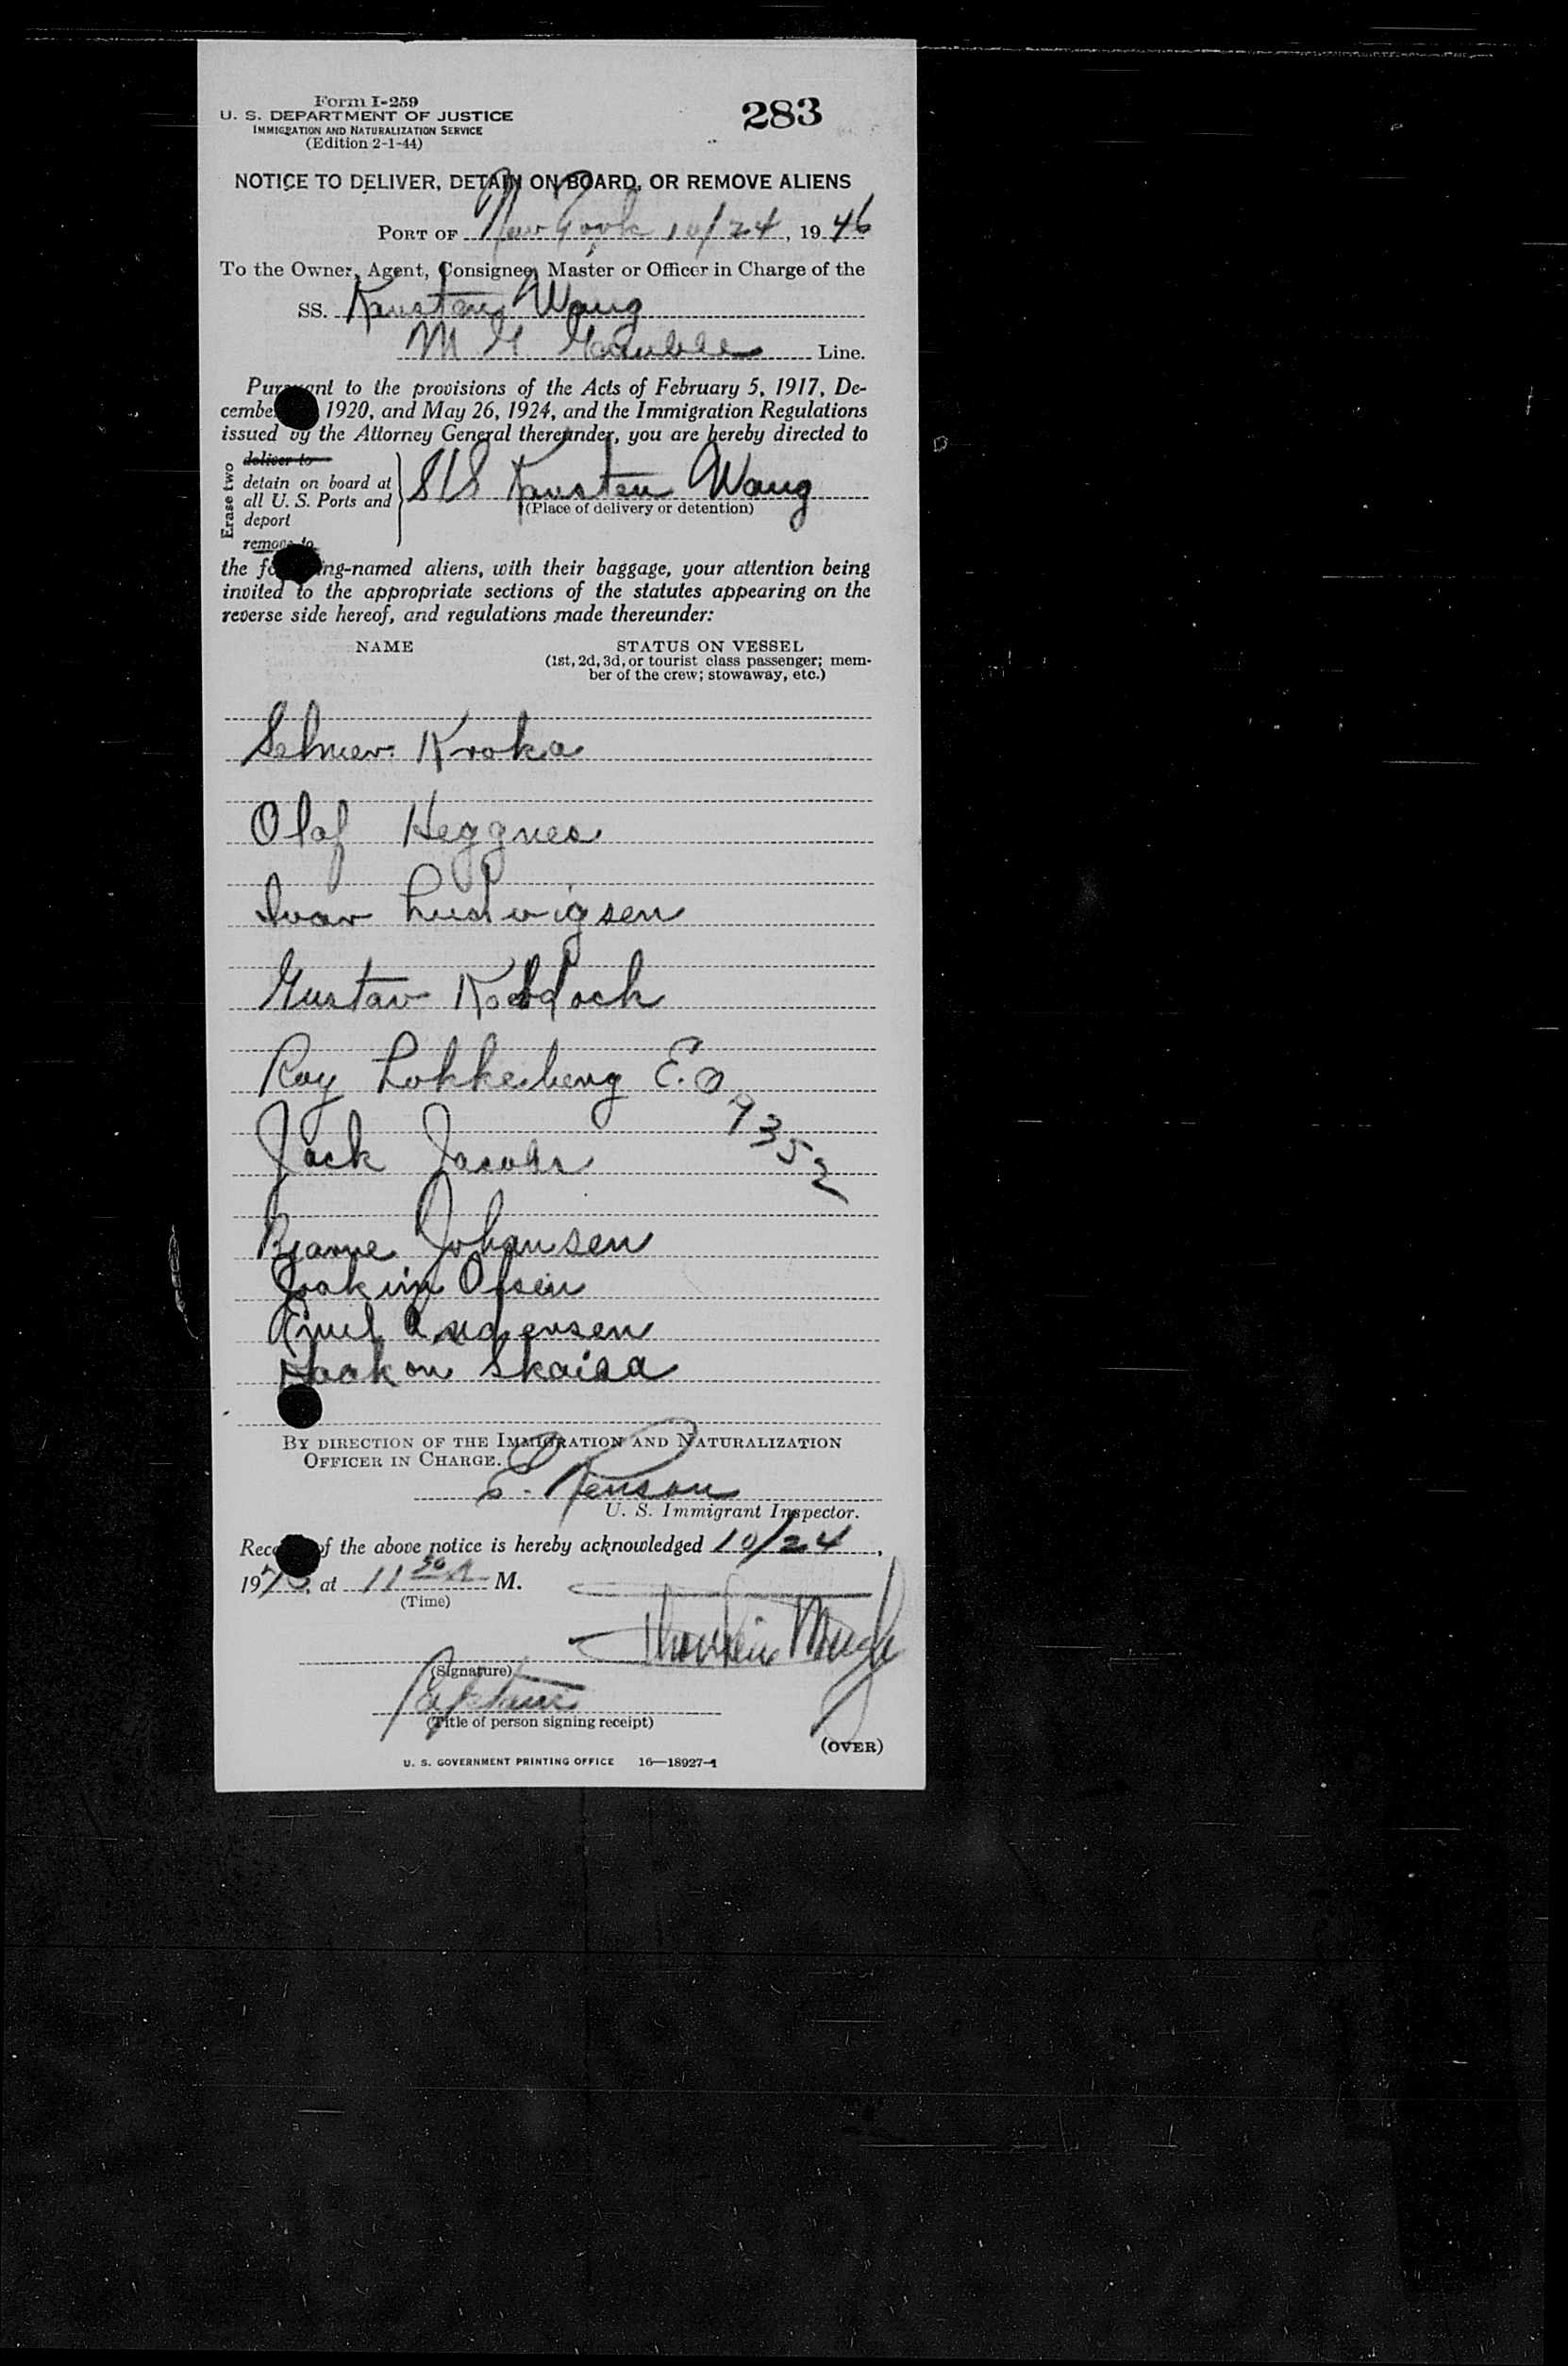 Form I-259
U. S. DEPARTMENT OF JUSTICE
IMMIGRATION AND NATURALIZATION SERVICE
(Edition 2-1-44)
283
NOTICE TO DELIVER, DETAIN ON BOARD, OR REMOVE ALIENS
PORT OF New York 10/24, 1946
To the Owner, Agent, Consignee, Master or Officer in Charge of the
SS. Karsten Wang
M G Line.
Pursuant to the provisions of the Acts of February 5, 1917, De-
cember 1920, and May 26, 1924, and the Immigration Regulations
issued by the Attorney General thereunder, you are hereby directed to
Erase two
deliver to
detain on board at
all U. S. Ports and
deport
remove to
S/S Karsten Wang
(Place of delivery or detention)
the following-named aliens, with their baggage, your attention being
invited to the appropriate sections of the statutes appearing on the
reverse side hereof, and regulations made thereunder:
NAME STATUS ON VESSEL
(1st, 2d, 3d, or tourist class passenger; mem-
ber of the crew; stowaway, etc.)
Selmer Kroka
Olaf Heggnes
Ivar Ludvigsen
Gustav
Roy Lokkeberg E.O
9352
Jack Jacobs
Bjarne Johansen
Joakim Olsen
Andersen
Haakon
BY DIRECTION OF THE IMMIGRATION AND NATURALIZATION
OFFICER IN CHARGE.
U. S. Immigrant Inspector.
Receipt of the above notice is hereby acknowledged 10/24,
1946, at 11 30 A M.
(Time)
(Signature)
Captain
(Title of person signing receipt)
(OVER)
U. S. GOVERNMENT PRINTING OFFICE 16—18927-1